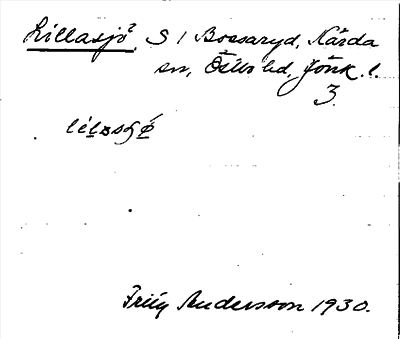 Lillasjö, S / Bossaryd, Kärda
sn, Östbo hd, Jönk. l.
3.
Andersson 1930.